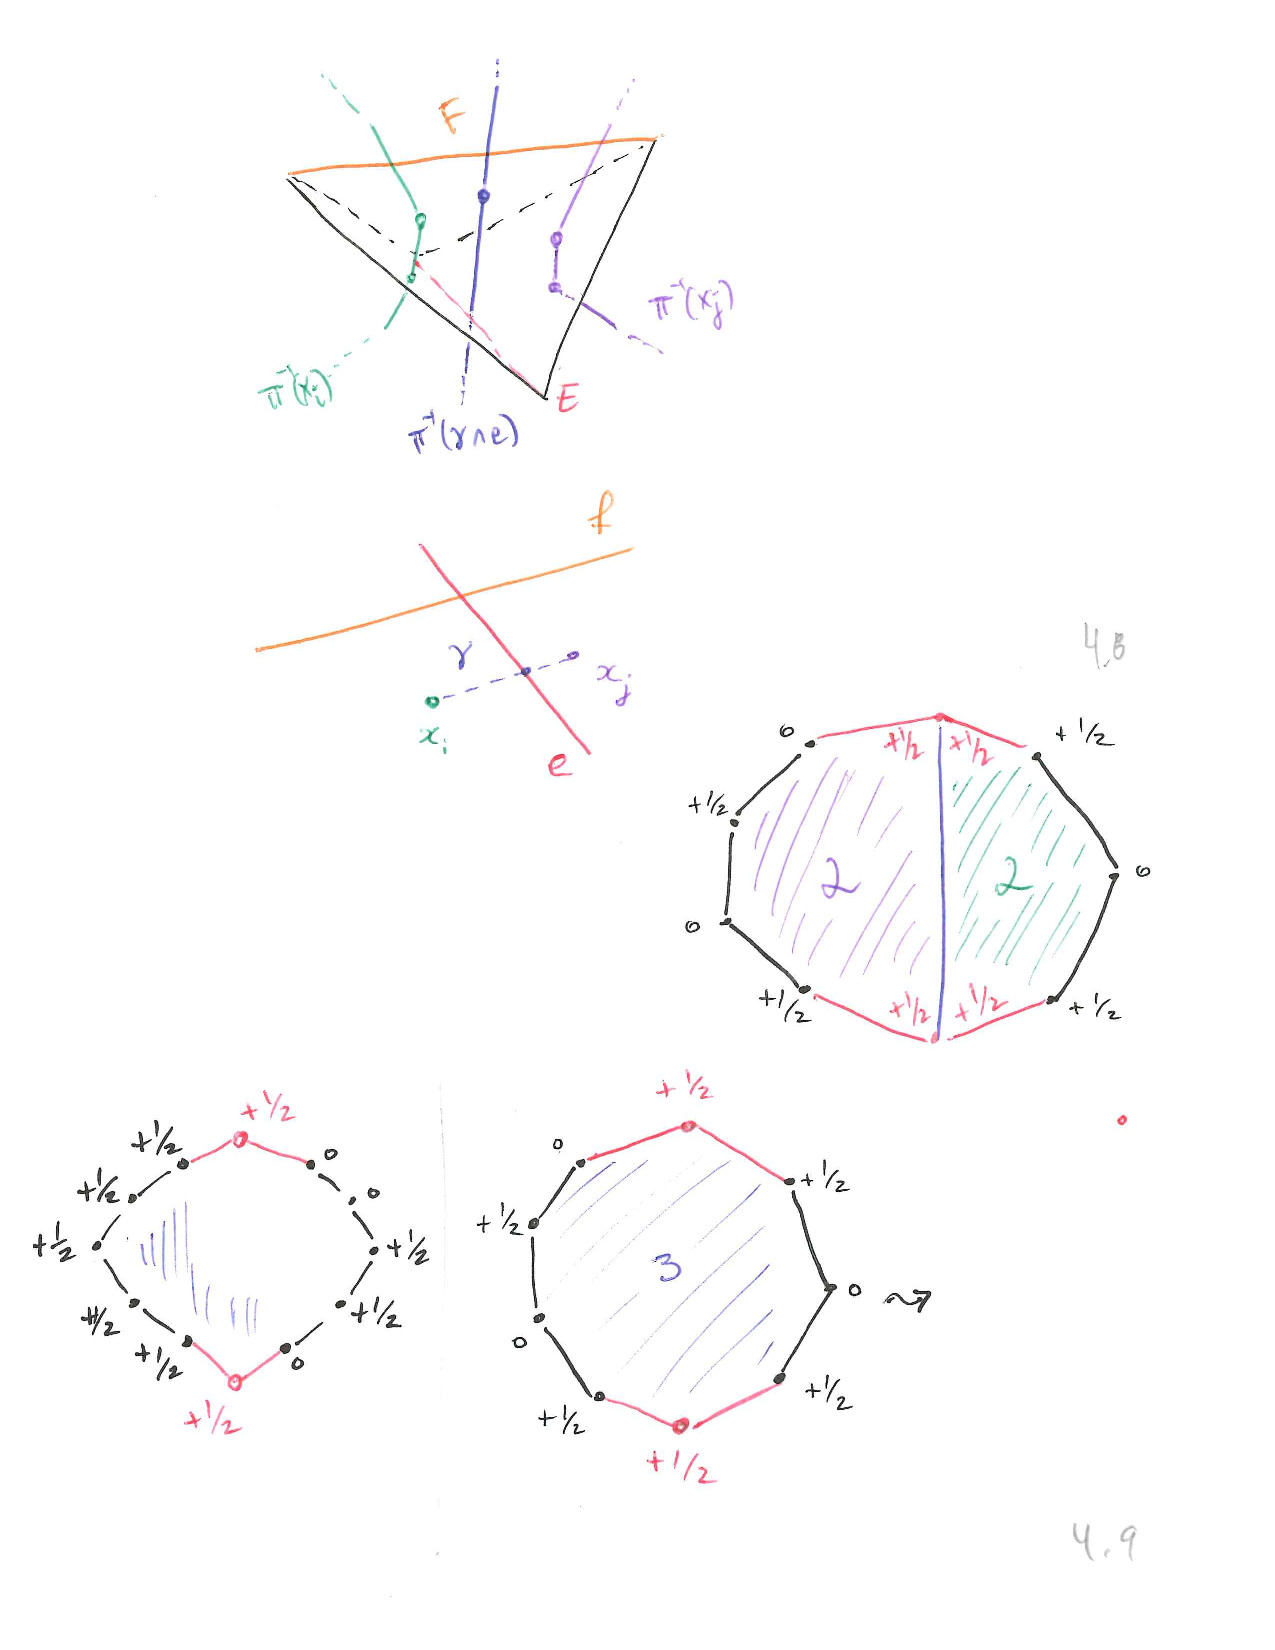 F
π⁻¹(xⱼ)
π⁻¹(xᵢ)
E
π⁻¹(γ∩e)
f
γ
xⱼ
xᵢ
e
4.8
0 +1/2 +1/2 +1/2
+1/2
2 2 0
0
+1/2 +1/2 +1/2 +1/2
+1/2
+1/2 0
+1/2 0
+1/2 +1/2
+1/2 +1/2
+1/2 0
+1/2
+1/2
0 +1/2
+1/2
3 0
0
+1/2 +1/2
+1/2
4.9